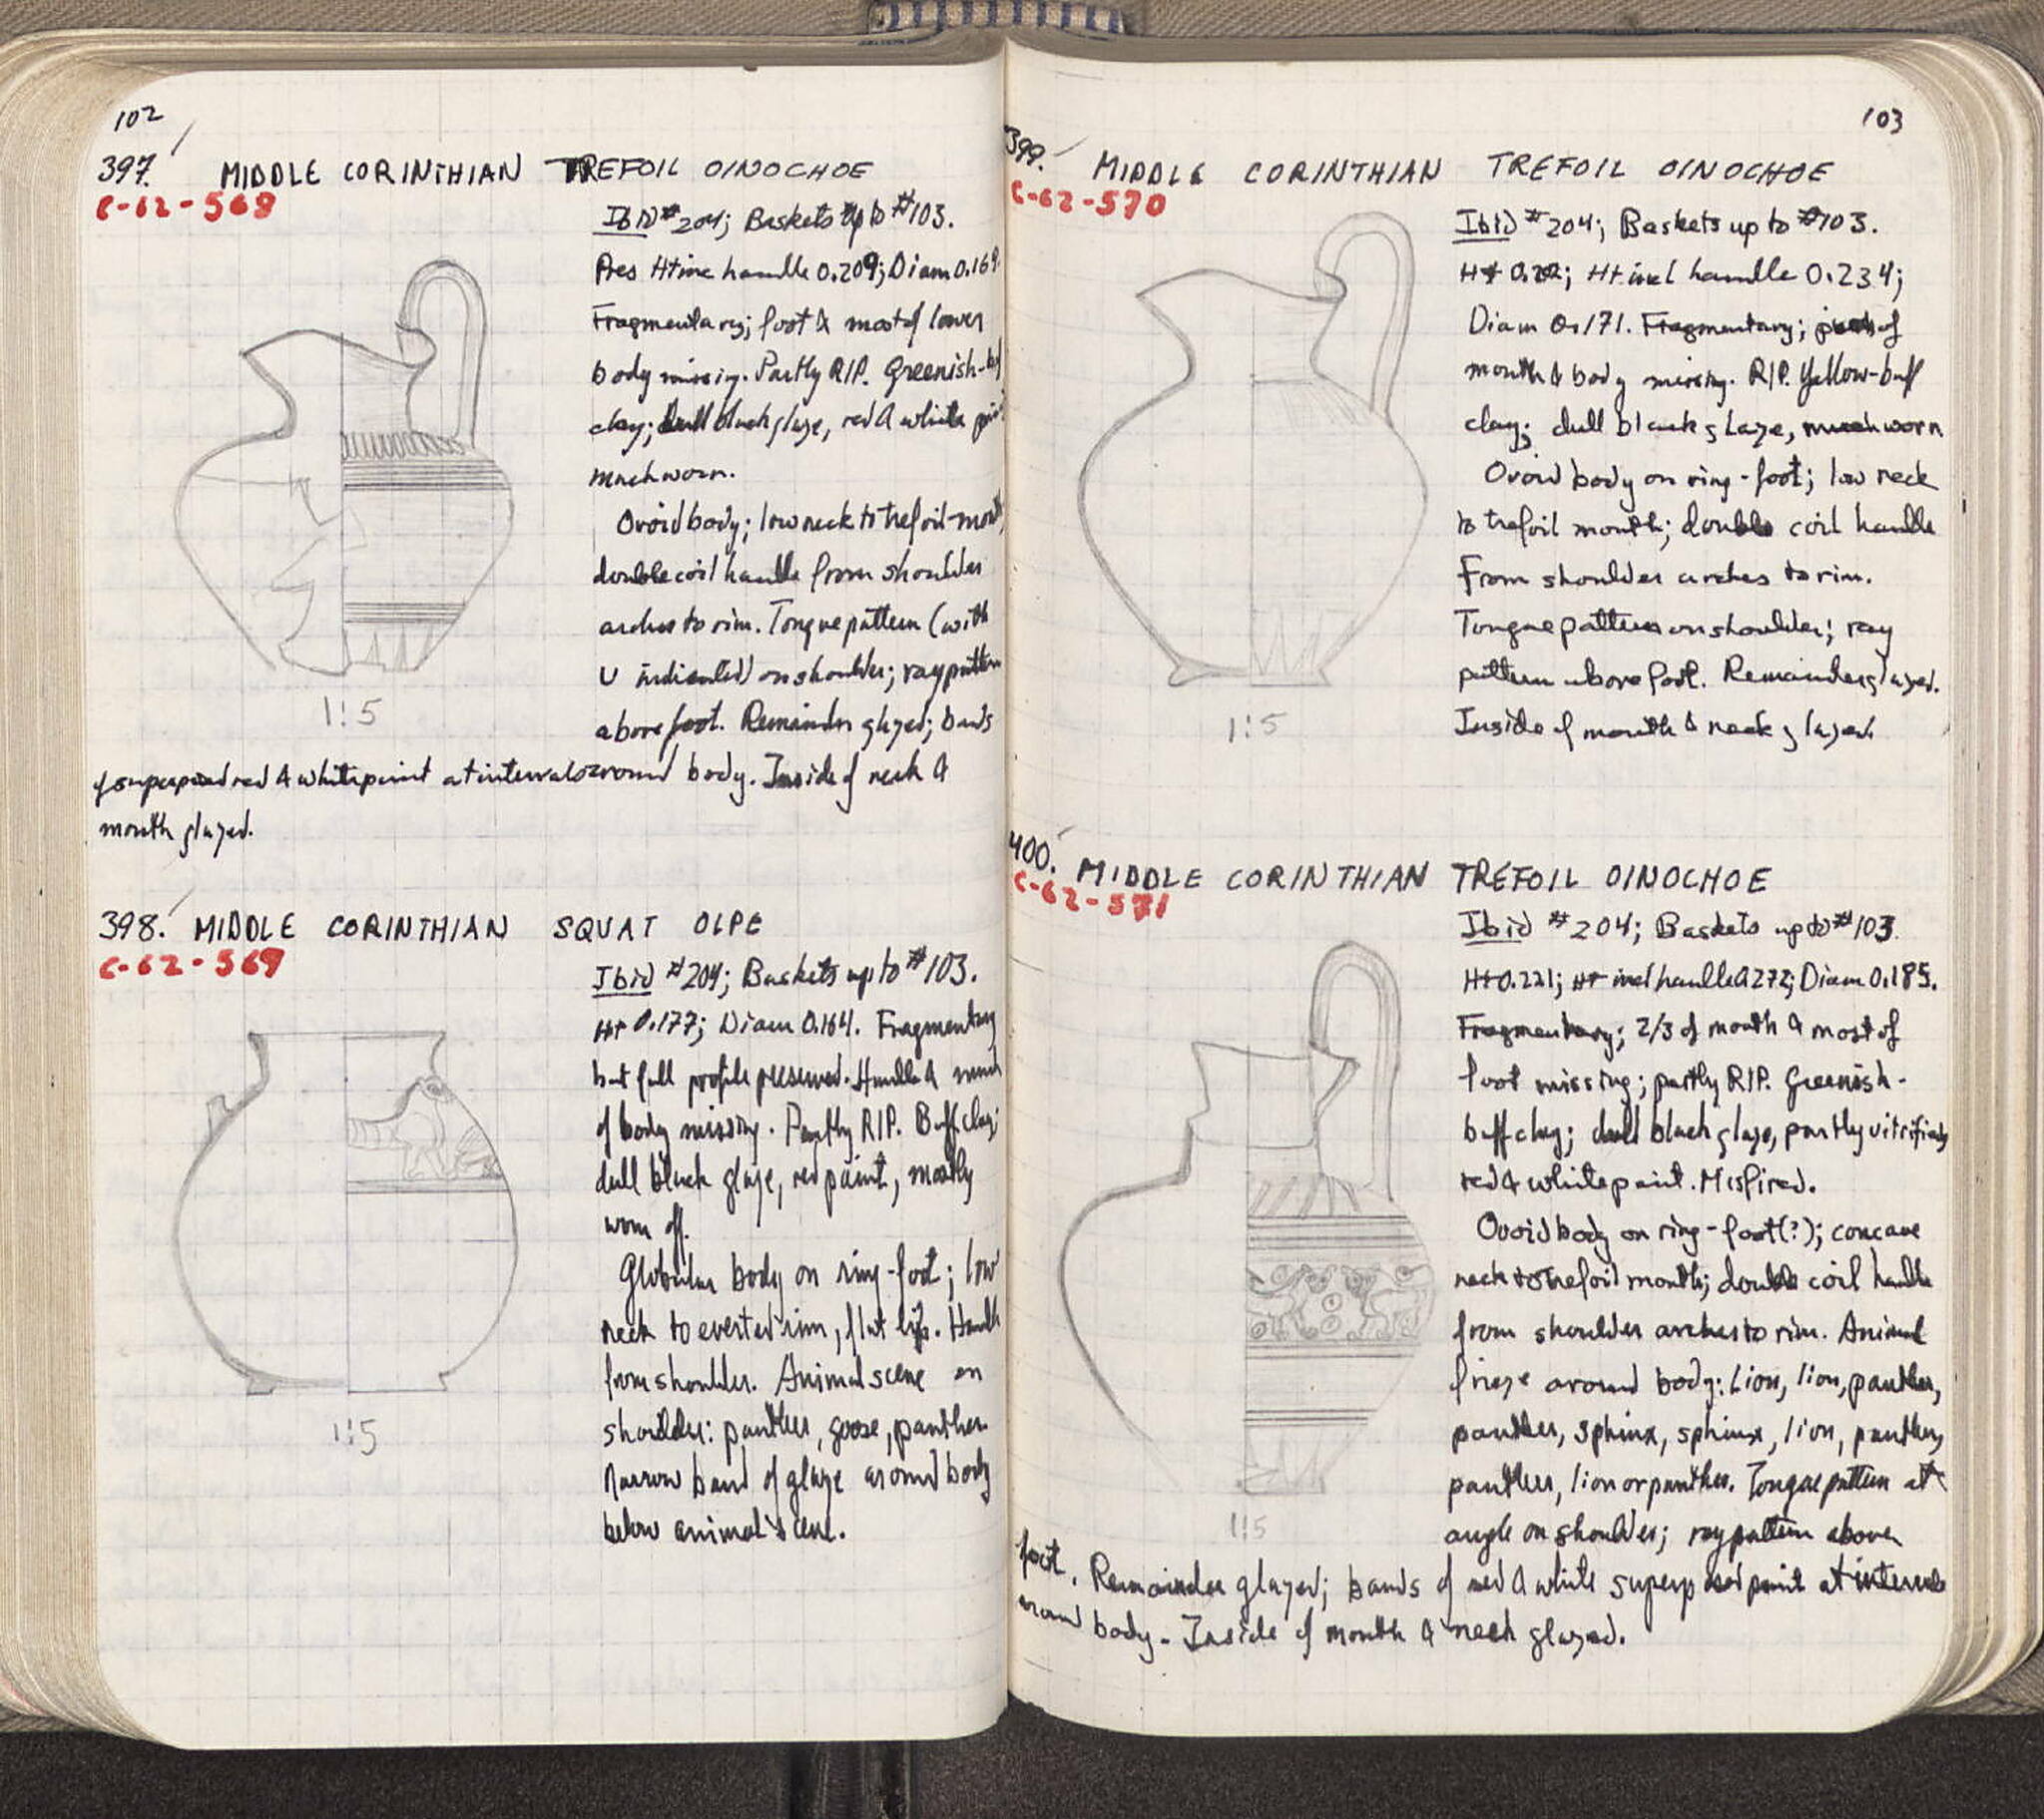 102
397. MIDDLE CORINTHIAN TREFOIL OINOCHOE
C-62-568
Ibid #204; Baskets up to #103.
Pres Ht inc handle 0.209; Diam 0.169.
Fragmentary; foot & most of lower
body missing. Partly RIP. Greenish-buf
clay; dull black glaze, red & white pai
much worn.
Ovoid body; low neck to trefoil-mouth,
double coil handle from shoulder
arches to rim. Tongue pattern (with
U indicated) on shoulder; ray pattern
above foot. Remainder glazed; bands
of superposed red & white paint at intervals around body. Inside of neck &
mouth glazed.
1:5
398. MIDDLE CORINTHIAN SQUAT OLPE
C-62-569
Ibid #204; Baskets up to #103.
Ht 0.177; Diam 0.164. Fragmentary
but full profile preserved. Handle & much
of body missing. Partly RIP. Buff clay;
dull black glaze, red paint, mostly
worn off.
Globular body on ring-foot; low
neck to everted rim, flat lip. Handle
from shoulder. Animal scene on
shoulder: panther, goose, panther.
Narrow band of glaze around body
below animal scene.
1:5
103
399. MIDDLE CORINTHIAN TREFOIL OINOCHOE
C-62-570
Ibid #204; Baskets up to #103.
Ht 0.202; Ht incl handle 0.234;
Diam 0.171. Fragmentary; parts of
mouth & body missing. RIP. Yellow-buff
clay; dull black glaze, much worn
Ovoid body on ring-foot; low neck
to trefoil mouth; double coil handle
from shoulder arches to rim.
Tongue pattern on shoulder; ray
pattern above foot. Remainder glazed.
Inside of mouth & neck glazed.
1:5
400. MIDDLE CORINTHIAN TREFOIL OINOCHOE
C-62-571
Ibid #204; Baskets up to #103
Ht 0.221; Ht incl handle 0.272; Diam 0.185.
Fragmentary; 2/3 of mouth & most of
foot missing; partly RIP. Greenish-
buff clay; dull black glaze, partly vitrified;
red & white paint. Misfired.
Ovoid body on ring-foot(?); concave
neck to trefoil mouth; double coil handle
from shoulder arches to rim. Animal
frieze around body: Lion, lion, panther,
panther, sphinx, sphinx, lion, panther,
panther, lion or panther. Tongue pattern at
angle on shoulder; ray pattern above
foot. Remainder glazed; bands of red & white superposed paint at intervals
around body. Inside of mouth & neck glazed.
1:5